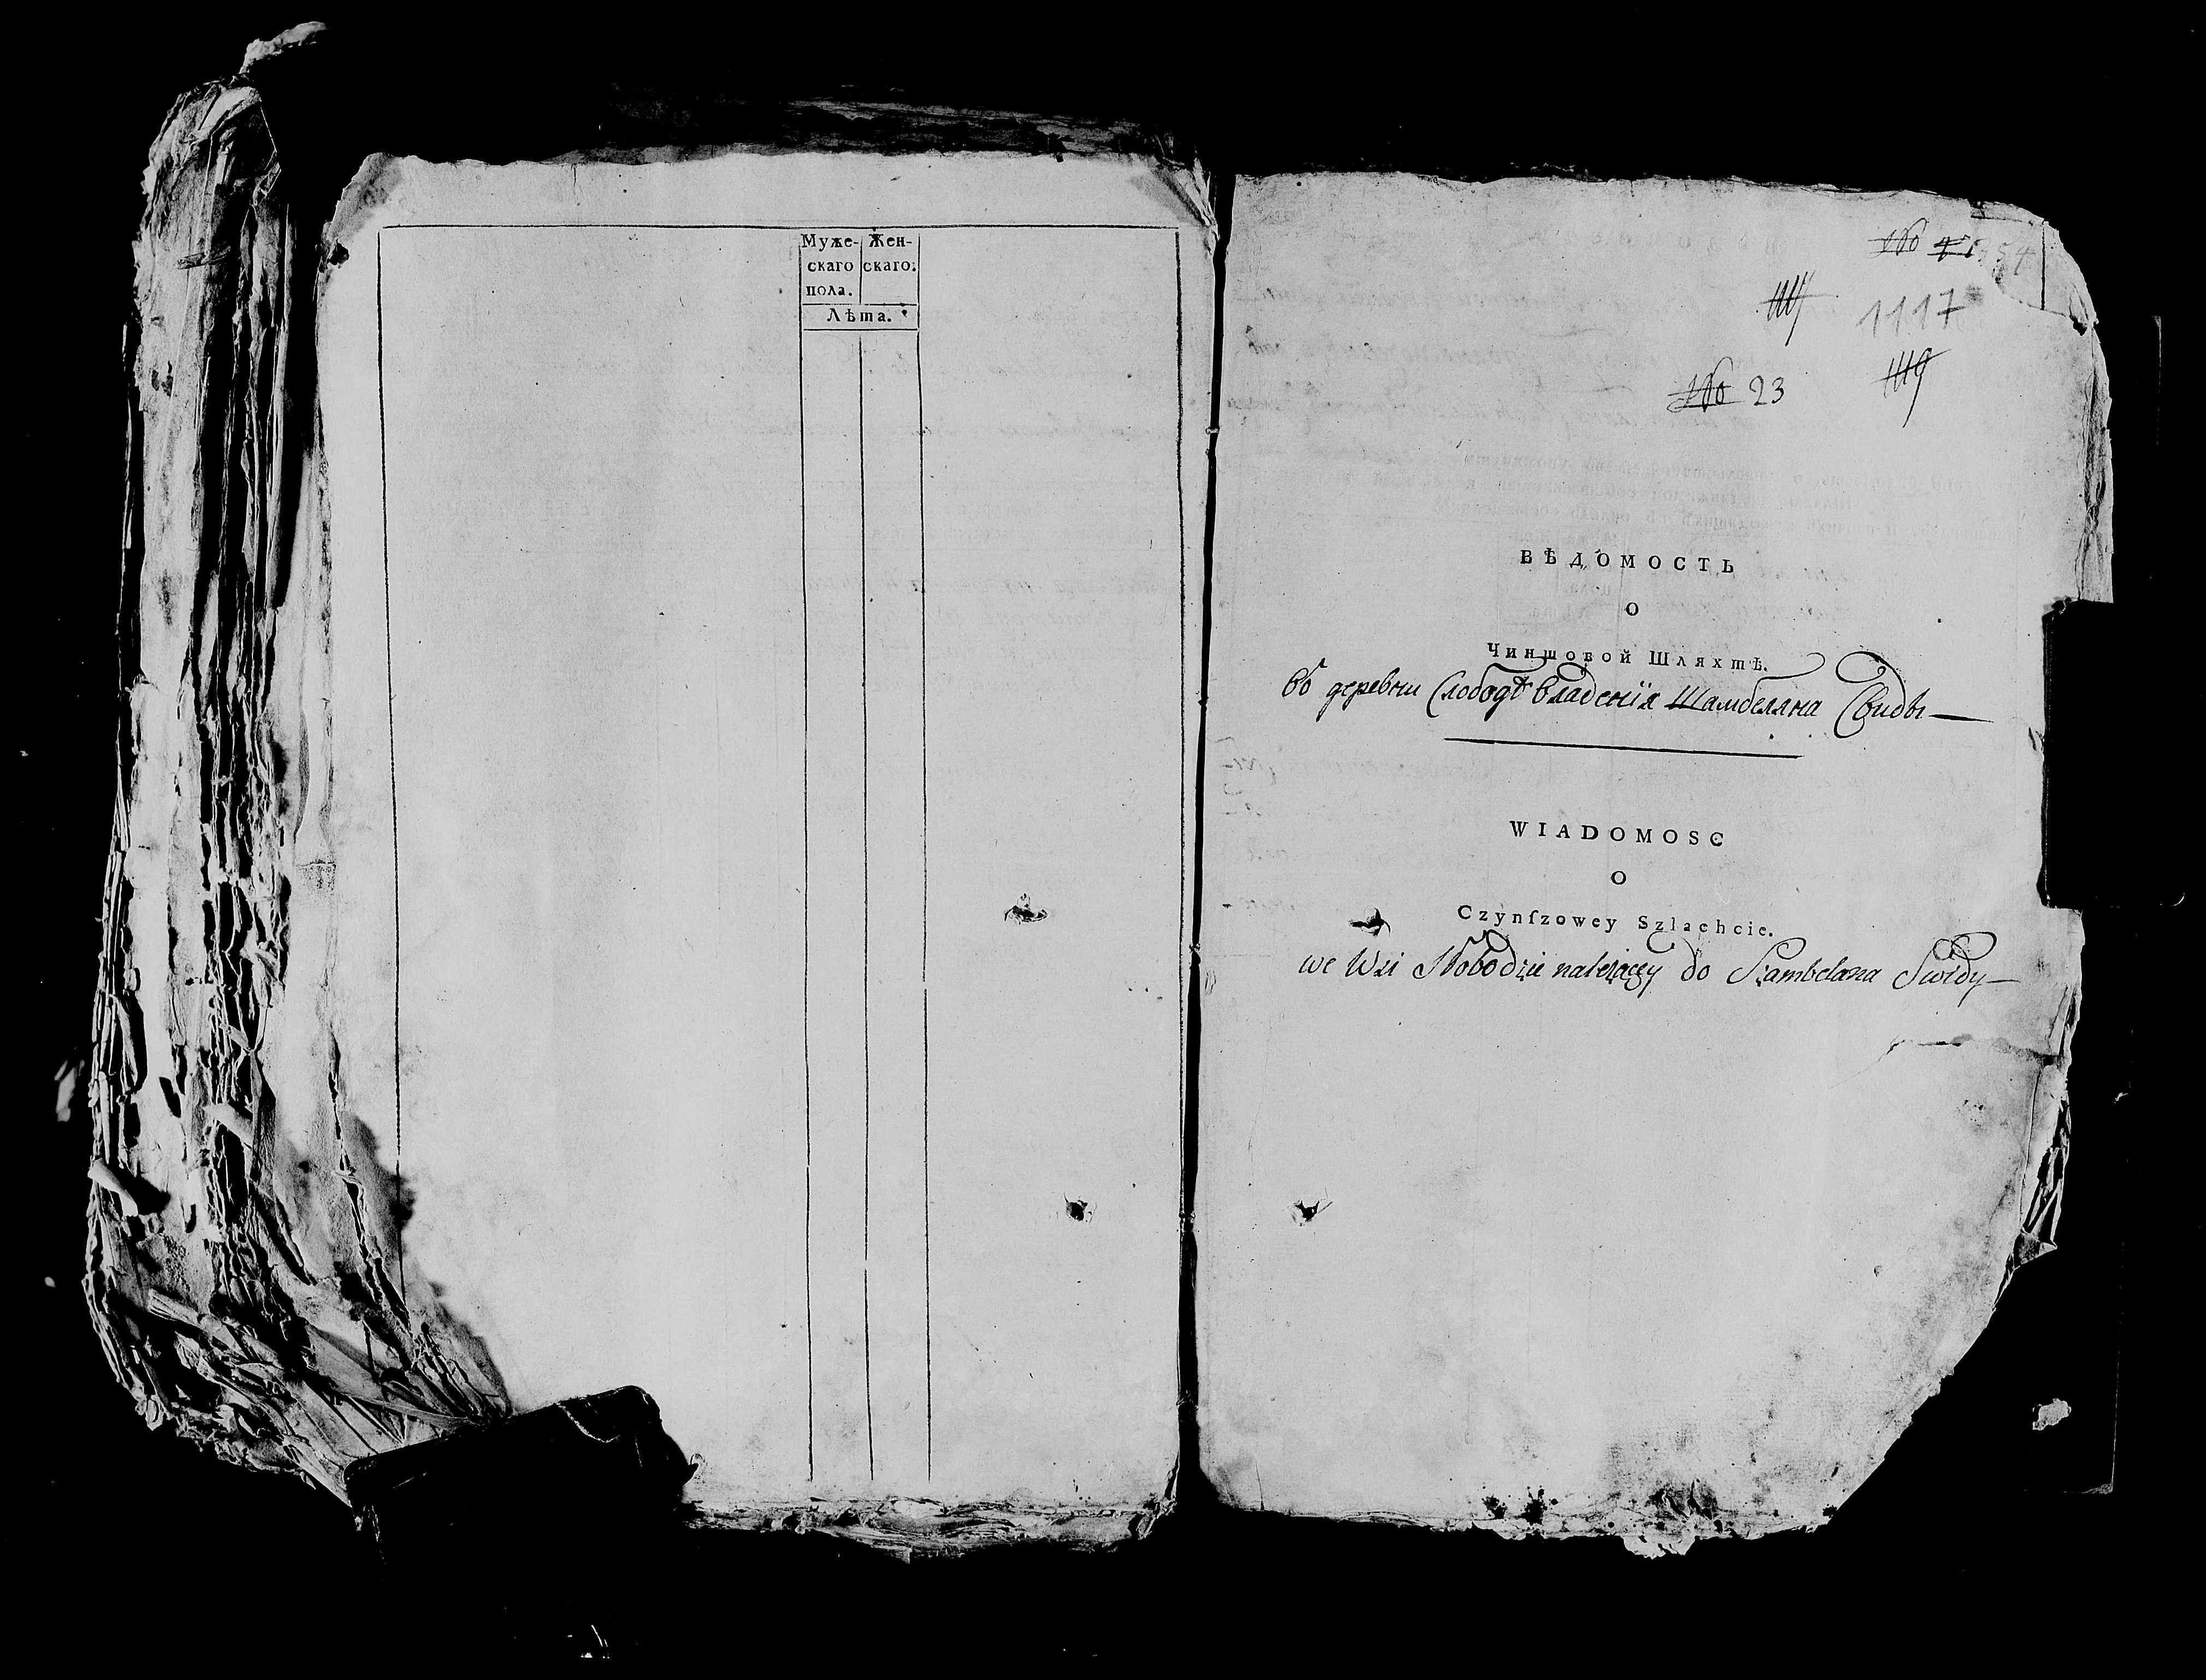 Муже- Жен-
скаго скаго.
пола.
Лѣта.
No
1117
1119
No 23
ВѢДОМОСТЬ
О
Чиншовой Шляхтѣ.
Въ деревни Слободѣ владенія Шамбеляна Свиды
WIADOMOSC
O
Czynſzowey Szlachcie.
we Wsi Słobodzie należącey do Szambelana Swidy